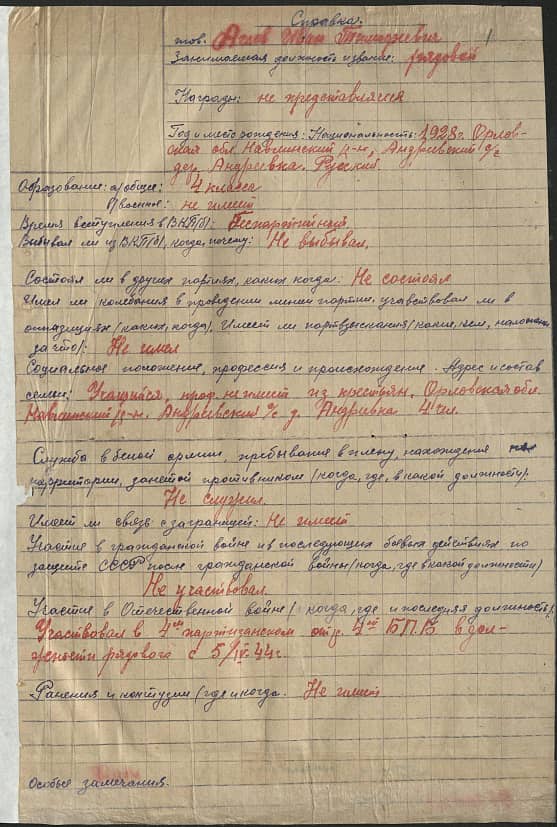 Справка.
тов. Агеев Иван Тимофеевич
Занимаемая должность и звание: рядовой
Награды: не представлялся
Год и место рождения: Национальность: 1928 г. Орлов-
ская обл. Навлинский р-н, Андреевский с/с
дер. Андреевка. Русский.
Образование: а/общее: 4 класса
б/военное: не имеет
Время вступления в ВКП/б/: Беспартийный.
Выбывал ли из ВКП/б/, когда, почему: Не выбывал.
Состоял ли в других партиях, каких когда: Не состоял
Имел ли колебания в проведении линии партии, участвовал ли в
оппозициях /каких, когда/, Имеет ли партвзыскания /какие, кем, наложены
за что/: Не имел
Социальное положение, профессия и происхождение. Адрес и состав
семьи: Учащийся, проф. не имеет из крестьян. Орловская обл.
Навлинский р-н. Андреевский с/с д. Андреевка 4 чел.
Служба в белой армии, пребывание в плену, нахождение на
территории, занятой противником /когда, где, в какой должности/:
Не служил.
Имеет ли связь с заграницей: Не имеет
Участие в гражданской войне и в последующих боевых действиях по
защите СССР после гражданской войны /когда, где в какой должности/
Не участвовал.
Участие в Отечественной войне / когда, где и последняя должность/:
Участвовал в 4ом партизанском отр. 4ой БПБ в дол-
жности рядового с 5/IV-44 г.
Ранения и контузии /где и когда. Не имеет
Особые замечания.